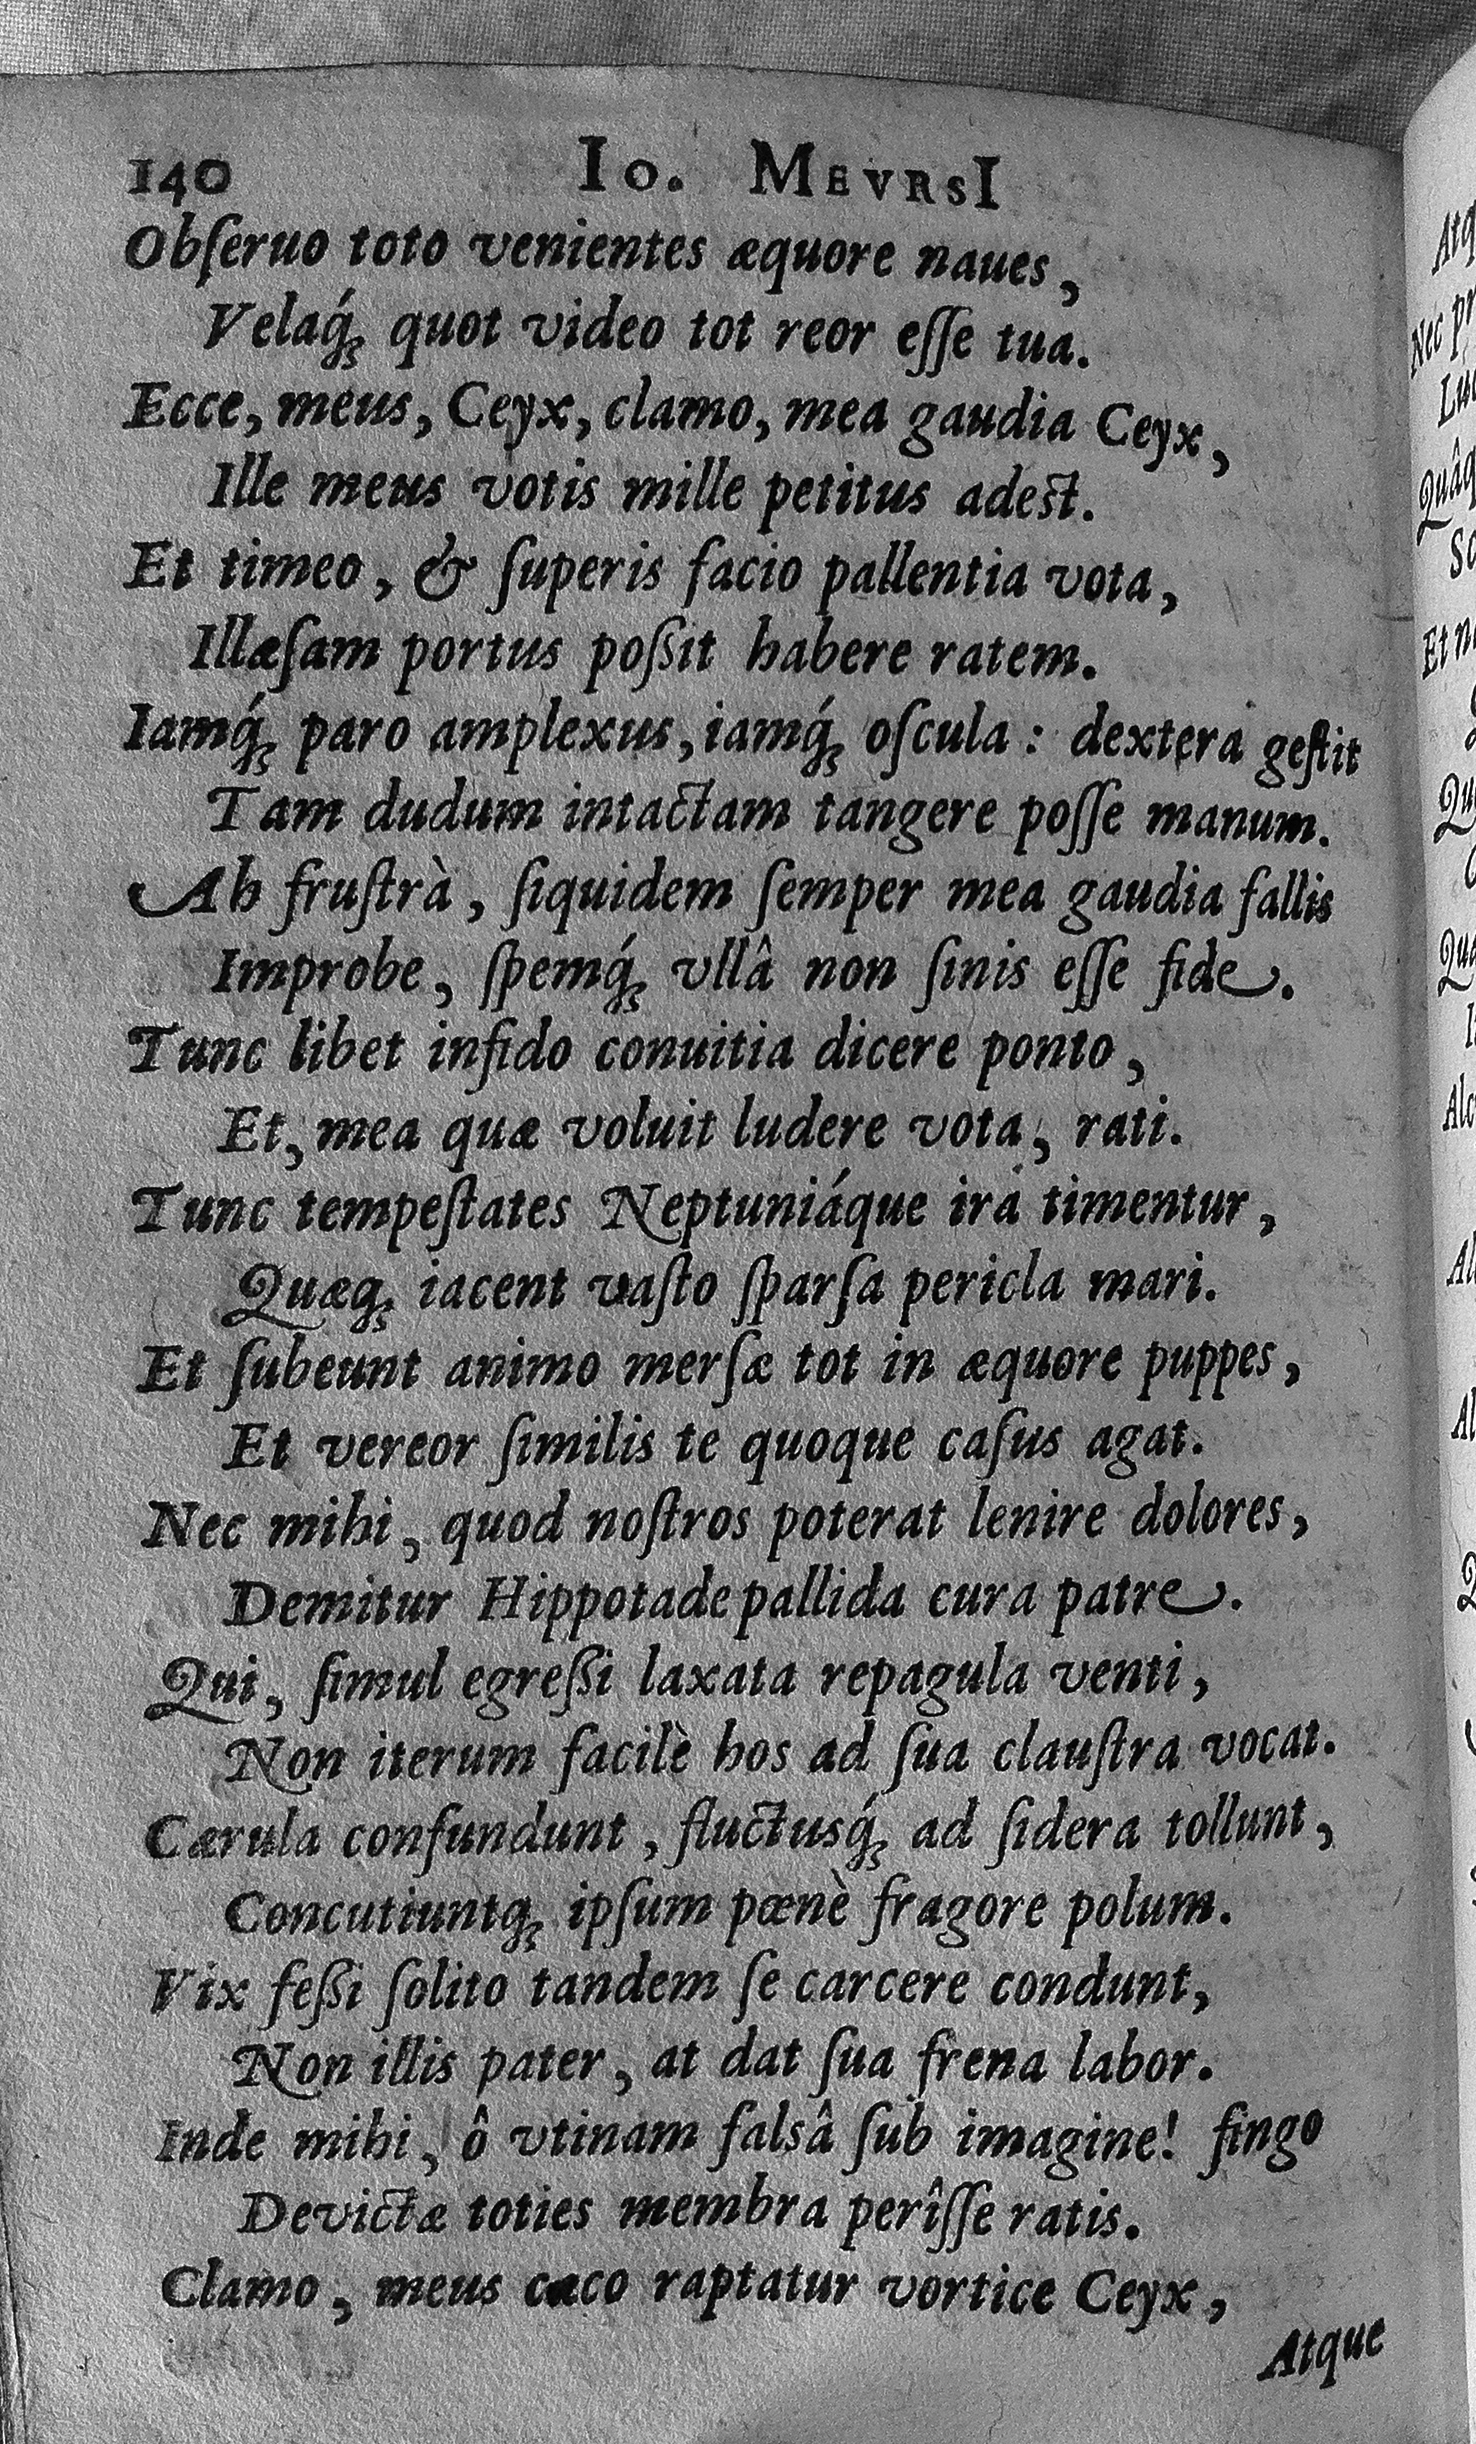 140 Io. MEVRSI
Obſeruo toto venientes æquore naues,
Velaq́ꝫ quot video tot reor eſſe tua.
Ecce, meus, Ceyx, clamo, mea gaudia Ceyx,
Ille meus votis mille petitus adest.
Et timeo, & ſuperis facio pallentia vota,
Illæſam portus poßit habere ratem.
Iamq́ꝫ paro amplexus, iamq́ꝫ oſcula: dextera geſtit
Tam dudum intactam tangere poſſe manum.
Ah fruſtrà, ſiquidem ſemper mea gaudia fallis
Improbe, ſpemq́ꝫ vllâ non ſinis eſſe fide.
Tunc libet infido conuitia dicere ponto,
Et, mea quæ voluit ludere vota, rati.
Tunc tempeſtates Neptuniáque ira timentur,
Quæqꝫ iacent vaſto ſparſa pericla mari.
Et ſubeunt animo merſæ tot in æquore puppes,
Et vereor ſimilis te quoque caſus agat.
Nec mihi, quod noſtros poterat lenire dolores,
Demitur Hippotade pallida cura patre.
Qui, ſimul egreßi laxata repagula venti,
Non iterum facilè hos ad ſua clauſtra vocat.
Cærula confundunt, fluctusq́ꝫ ad ſidera tollunt,
Concutiuntqꝫ ipſum pœnè fragore polum.
Vix feßi ſolito tandem ſe carcere condunt,
Non illis pater, at dat ſua frena labor.
Inde mihi, ô vtinam falsâ ſub imagine! fingo
Devictæ toties membra perîſſe ratis.
Clamo, meus cæco raptatur vortice Ceyx,
Atque